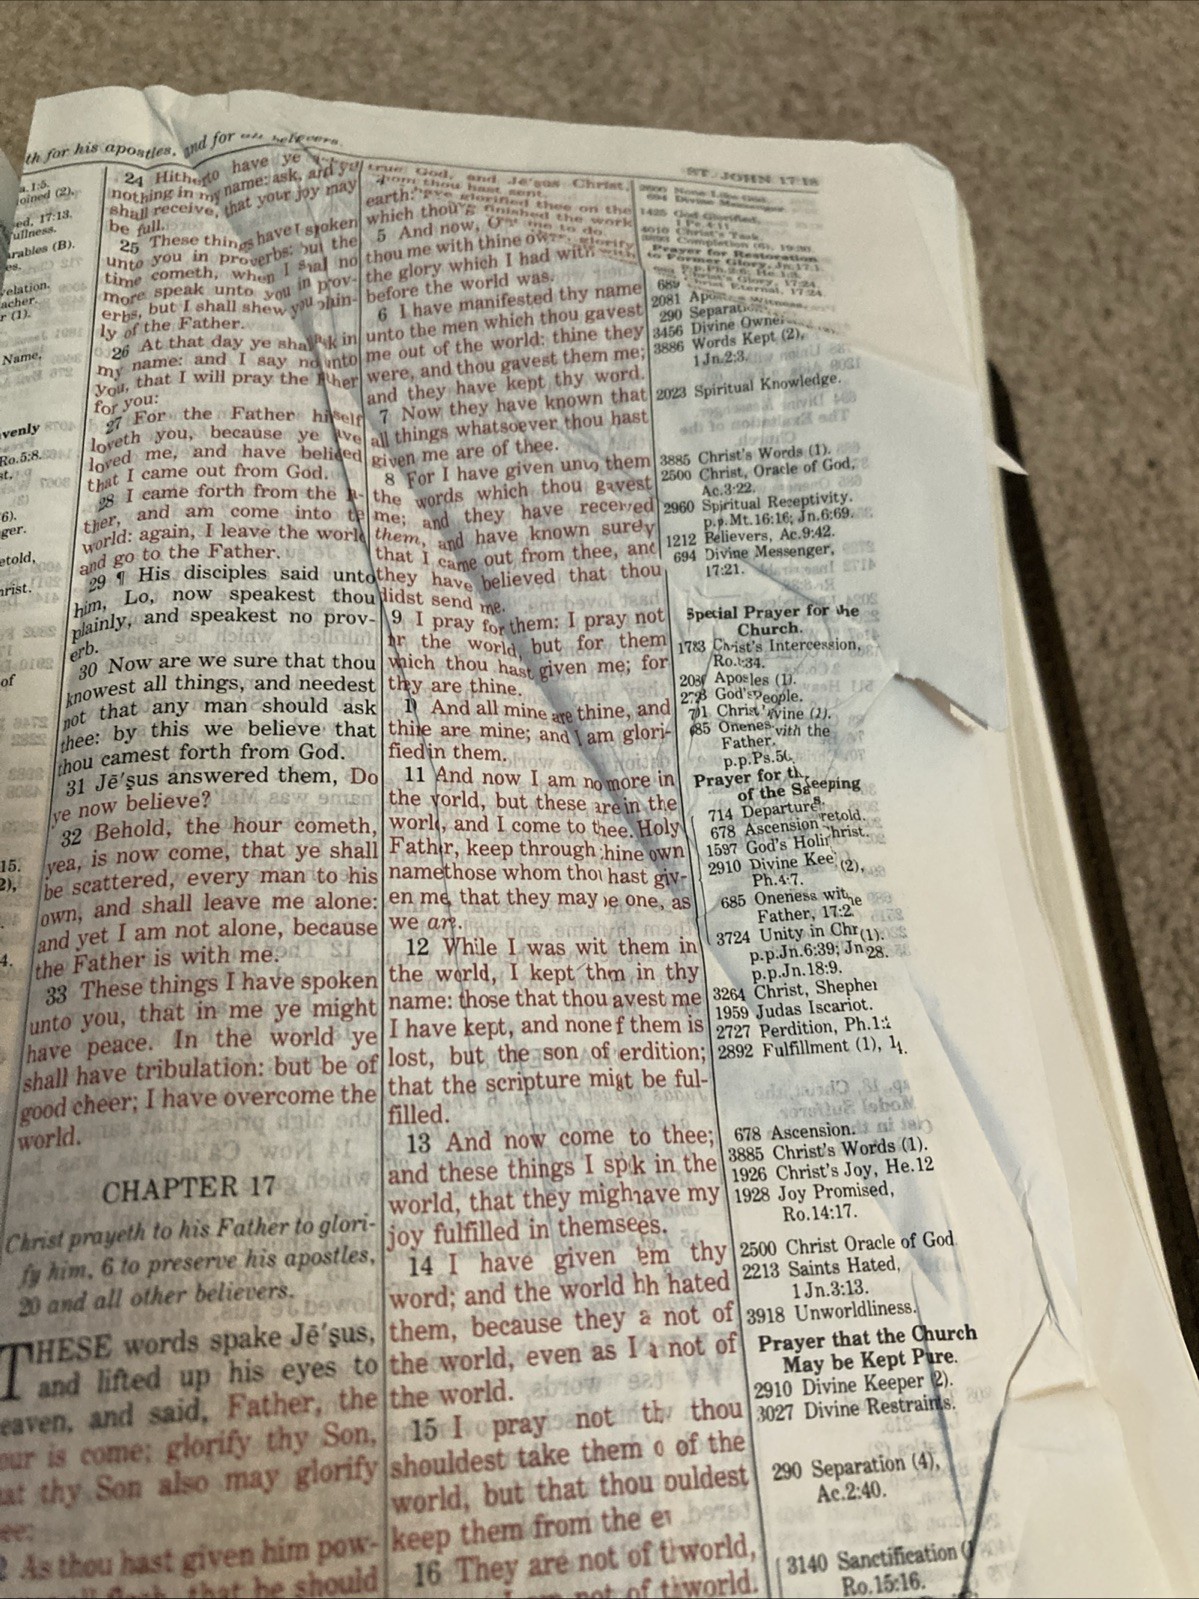 th for his apostles, and for all believers.
ST. JOHN 17:18
a.1:5.
oined (2),
ed, 17:13.
ullness.
arables (B).
es.
velation.
acher.
r (1).
Name,
venly
Ro.5:8.
st.
(3)
6).
ger.
etold,
hrist.
of
15.
2),
4.
24 Hitherto have ye asked
nothing in my name: ask, and ye
shall receive, that your joy may
be full.
25 These things have I spoken
unto you in proverbs: but the
time cometh, when I shal no
more speak unto you in prov-
erbs, but I shall shew you plain-
ly of the Father.
26 At that day ye sha k in
my name: and I say no unto
you, that I will pray the ther
for you:
27 For the Father hi self
loveth you, because ye ave
loved me, and have belie ed
that I came out from God.
28 I came forth from the a-
ther, and am come into te
world: again, I leave the world
and go to the Father.
29 ¶ His disciples said unto
him, Lo, now speakest thou
plainly, and speakest no prov-
erb.
30 Now are we sure that thou
knowest all things, and needest
not that any man should ask
thee: by this we believe that
thou camest forth from God.
31 Jē'ṣus answered them, Do
ye now believe?
32 Behold, the hour cometh,
yea, is now come, that ye shall
be scattered, every man to his
own, and shall leave me alone:
and yet I am not alone, because
the Father is with me.
33 These things I have spoken
unto you, that in me ye might
have peace. In the world ye
shall have tribulation: but be of
good cheer; I have overcome the
world.
CHAPTER 17
Christ prayeth to his Father to glori-
fy him, 6 to preserve his apostles,
20 and all other believers.
THESE words spake Jē'ṣus,
and lifted up his eyes to
eaven, and said, Father, the
our is come; glorify thy Son,
at thy Son also may glorify
ee:
2 As thou hast given him pow-
flesh, that he should
true God, and Jē'ṣus Christ,
thou hast sent.
have glorified thee on the
earth: finished the work
which thou me to do.
5 And now, glorify
thou me with thine own
the glory which I had with
before the world was.
6 I have manifested thy name
unto the men which thou gavest
me out of the world: thine they
were, and thou gavest them me;
and they have kept thy word.
7 Now they have known that
all things whatsoever thou hast
given me are of thee.
8 For I have given unto them
the words which thou gavest
me; and they have received
them, and have known surely
that I came out from thee, and
they have believed that thou
didst send me.
9 I pray for them: I pray not
r the world, but for them
which thou hast given me; for
they are thine.
1 And all mine are thine, and
thine are mine; and I am glori-
fied in them.
11 And now I am no more in
the world, but these are in the
world, and I come to thee. Holy
Father, keep through thine own
name those whom thou hast giv-
en me, that they may e one, as
we are.
12 While I was wit them in
the world, I kept thm in thy
name: those that thou avest me
I have kept, and none f them is
lost, but the son of erdition;
that the scripture migt be ful-
filled.
13 And now come to thee;
and these things I spk in the
world, that they migh ave my
joy fulfilled in themsees.
14 I have given em thy
word; and the world h hated
them, because they a not of
the world, even as I a not of
the world.
15 I pray not th thou
shouldest take them o of the
world, but that thou ouldest
keep them from the e
16 They are not of t world,
not of t world.
694 Divine Messenger.
1425 God Glorified,
1 Pe.4:11.
4010 Christ's Task.
Prayer for Restoration
to Former Glory, Jn.17:1.
2081 Apos
290 Separation
3456 Divine Owner
3886 Words Kept (2),
1 Jn.2:3.
2023 Spiritual Knowledge.
3885 Christ's Words (1).
2500 Christ, Oracle of God,
Ac.3:22.
2960 Spiritual Receptivity.
p.p.Mt.16:16; Jn.6:69.
1212 Believers, Ac.9:42.
694 Divine Messenger,
17:21.
Special Prayer for the
Church.
1783 Christ's Intercession,
Ro. :34.
208 Apostles (1).
God's People.
7 1 Christ ivine (2).
685 Oneness with the
Father.
p.p.Ps.50
Prayer for th
of the S eeping
714 Departure
678 Ascension retold.
1597 God's Holi hrist.
2910 Divine Kee (2),
Ph.4:7.
685 Oneness with e
Father, 17:2
3724 Unity in Chr (1).
p.p.Jn.6:39; Jn 28.
p.p.Jn.18:9.
3264 Christ, Shepher
1959 Judas Iscariot.
2727 Perdition, Ph.1:
2892 Fulfillment (1), 1
678 Ascension.
3885 Christ's Words (1).
1926 Christ's Joy, He.12
1928 Joy Promised,
Ro.14:17.
2500 Christ Oracle of God
2213 Saints Hated,
1 Jn.3:13.
3918 Unworldliness.
Prayer that the Church
May be Kept Pure.
2910 Divine Keeper (2).
3027 Divine Restraints.
290 Separation (4),
Ac.2:40.
3140 Sanctification (
Ro.15:16.